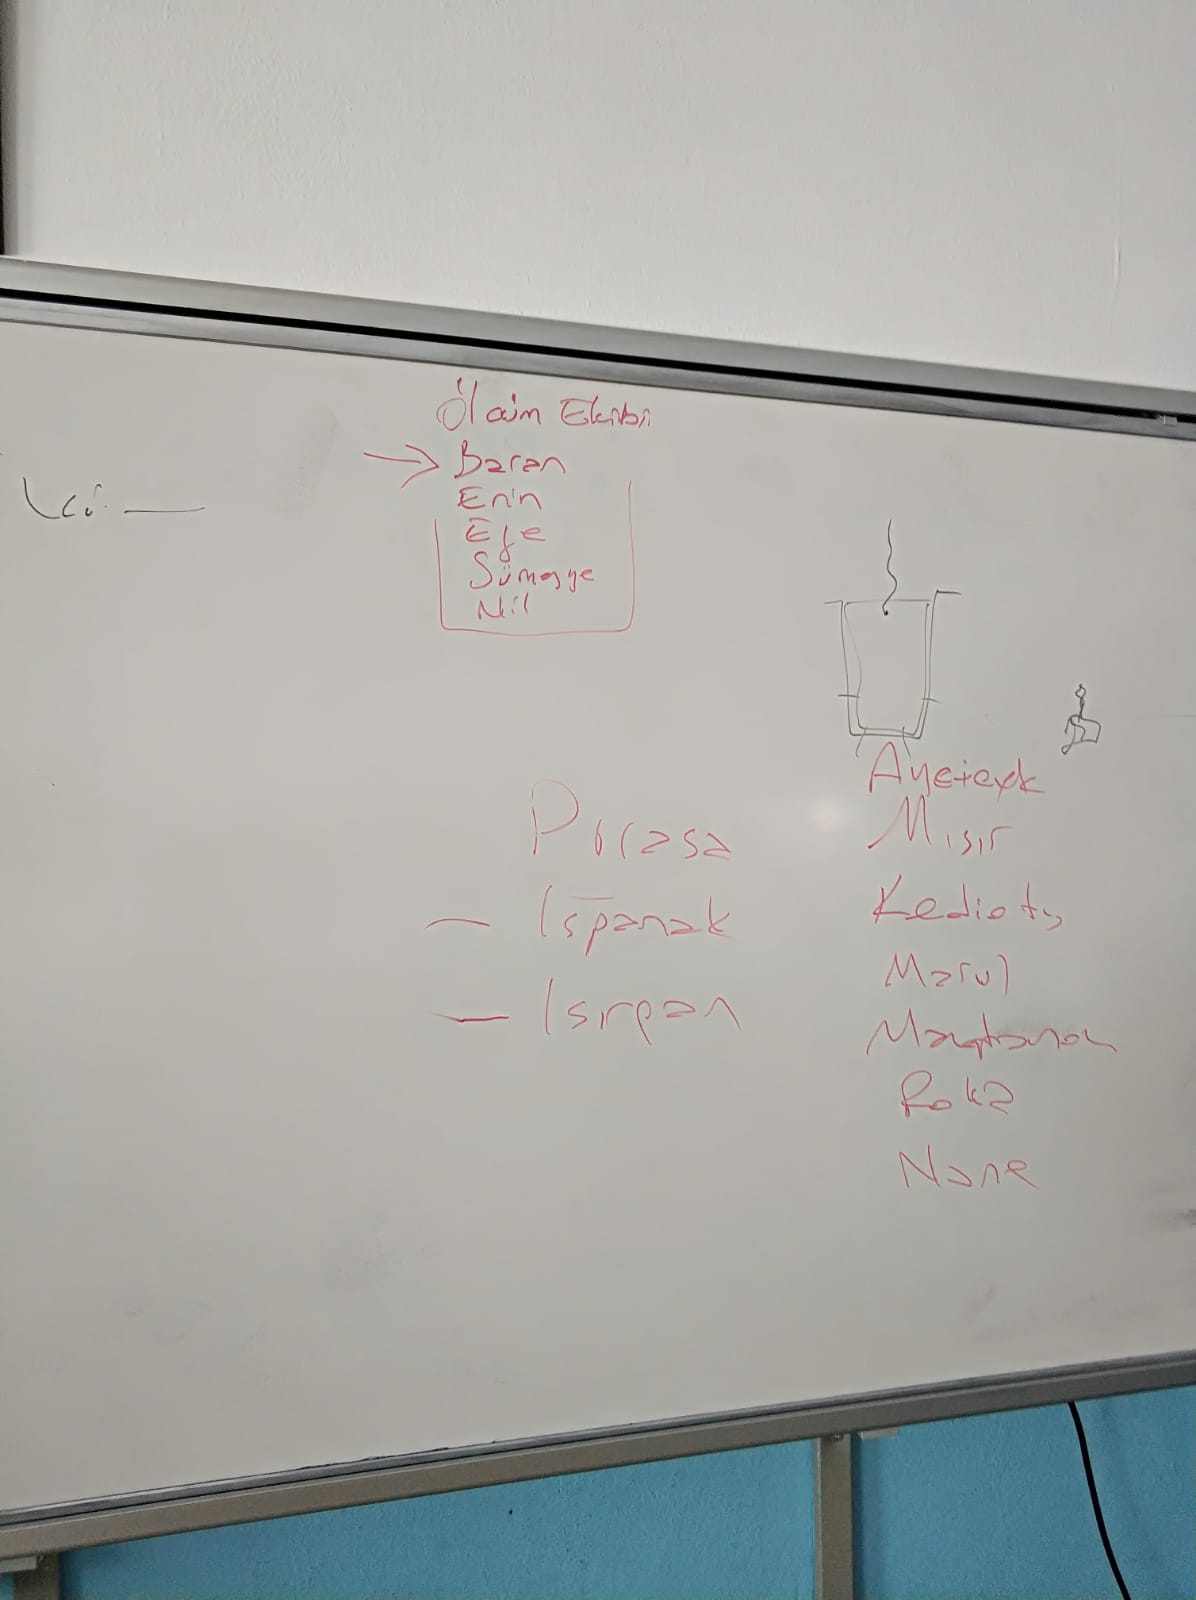 Ölçüm Ekibi
Baran
Emin
Efe
Sümeyye
Nil
Pırasa
- Ispanak
- Isırgan
Ayçiçek
Mısır
Kediotu
Marul
Maydanoz
Roka
Nane